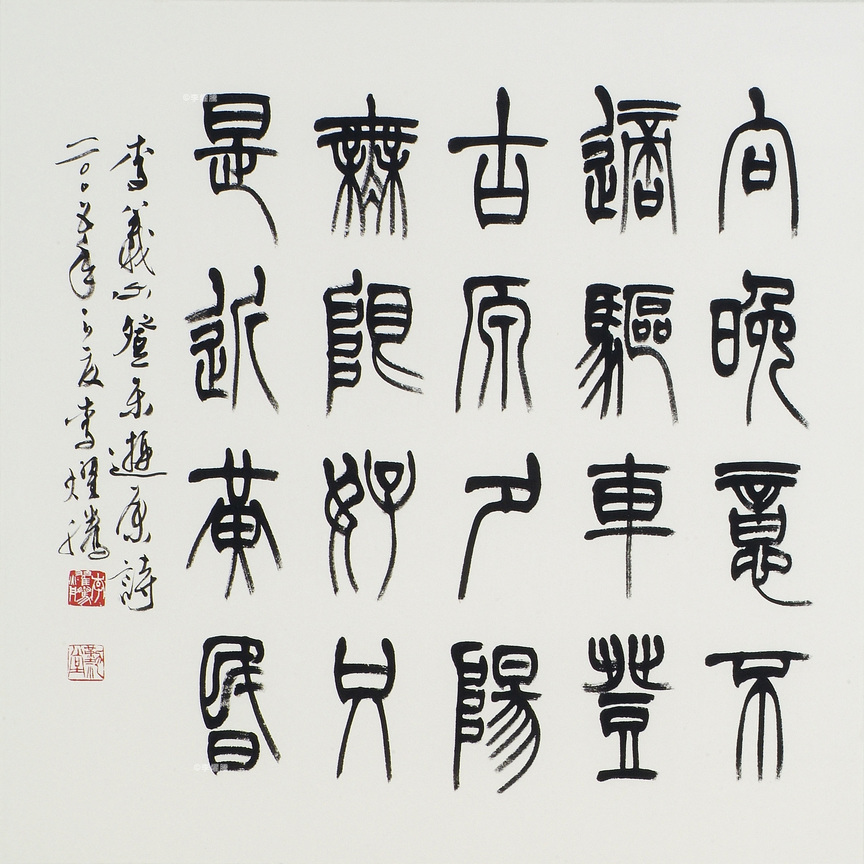 向晚意不
適驅車登
古原夕陽
無限好只
是近黃昏
李義山登樂遊原詩
二〇〇五年之夏李耀騰